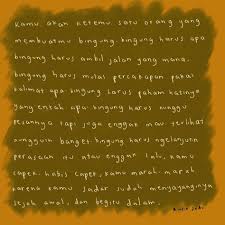 kamu akan ketemu satu orang yang
membuatmu bingung. bingung harus apa
bingung harus ambil jalan yang mana.
bingung harus mulai percakapan pakai
kalimat apa. bingung harus paham hatinya
yang entah apa. bingung harus nunggu
pesannya tapi juga enggak mau terlihat
nungguin banget. bingung harus ngelanjutin
perasaan itu atau enggak. lalu, kamu
capek. habis capek, kamu marah-marah
karena kamu sadar sudah menyayanginya
sejak awal, dan begitu dalam.